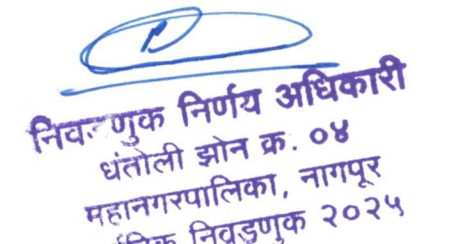 निवडणुक निर्णय अधिकारी
धंतोली झोन क्र. ०४
महानगरपालिका, नागपूर
निवडणुक २०२५